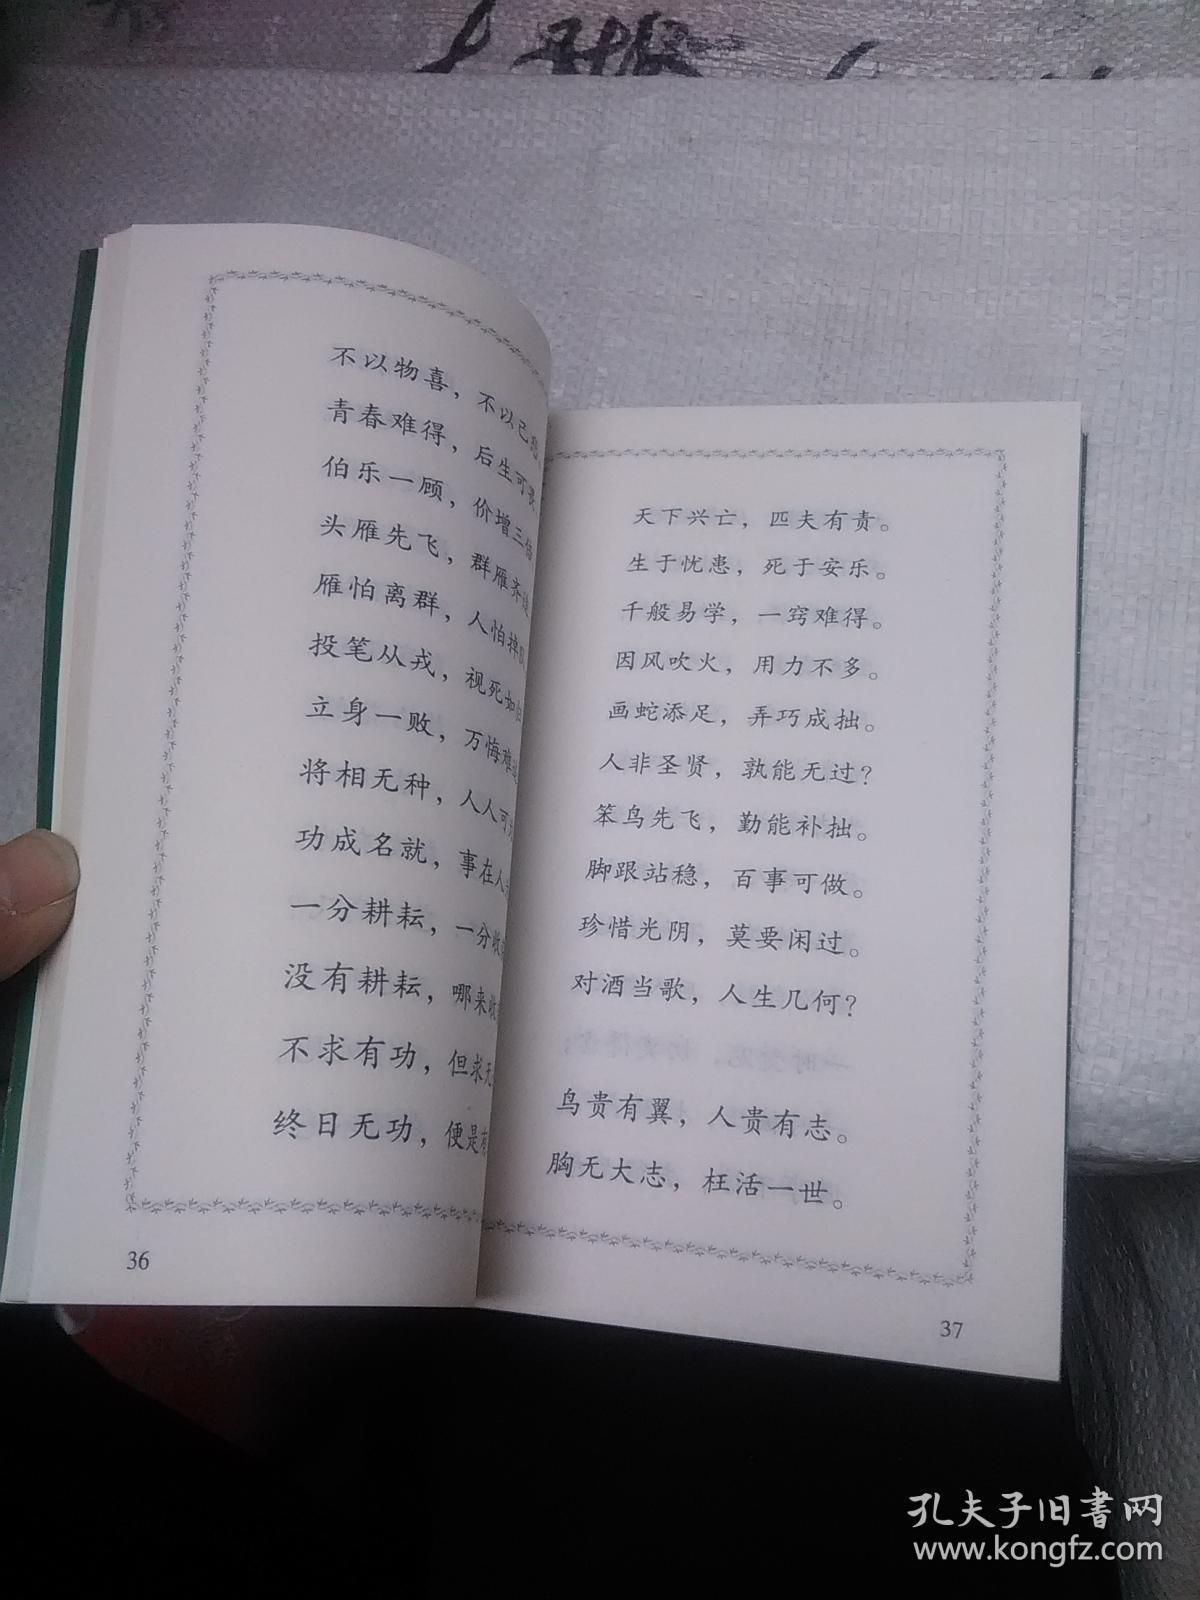 不以物喜，不以己
青春难得，后生可
伯乐一顾，价增三
头雁先飞，群雁齐
雁怕离群，人怕掉
投笔从戎，视死如归
立身一败，万悔难
将相无种，人人可
功成名就，事在人
一分耕耘，一分收
没有耕耘，哪来收
不求有功，但求无
终日无功，便是
36
天下兴亡，匹夫有责。
生于忧患，死于安乐。
千般易学，一窍难得。
因风吹火，用力不多。
画蛇添足，弄巧成拙。
人非圣贤，孰能无过？
笨鸟先飞，勤能补拙。
脚跟站稳，百事可做。
珍惜光阴，莫要闲过。
对酒当歌，人生几何？
鸟贵有翼，人贵有志。
胸无大志，枉活一世。
37
孔夫子旧书网
www.kongfz.com